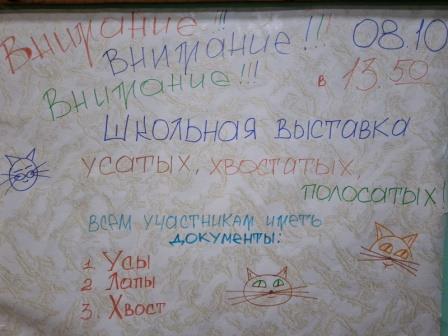 Внимание!!!
Внимание!!! 08.10
Внимание!!! в 13.50
Школьная выставка
усатых, хвостатых,
полосатых!
Всем участникам иметь
документы:
1 Усы
2 Лапы
3. Хвост